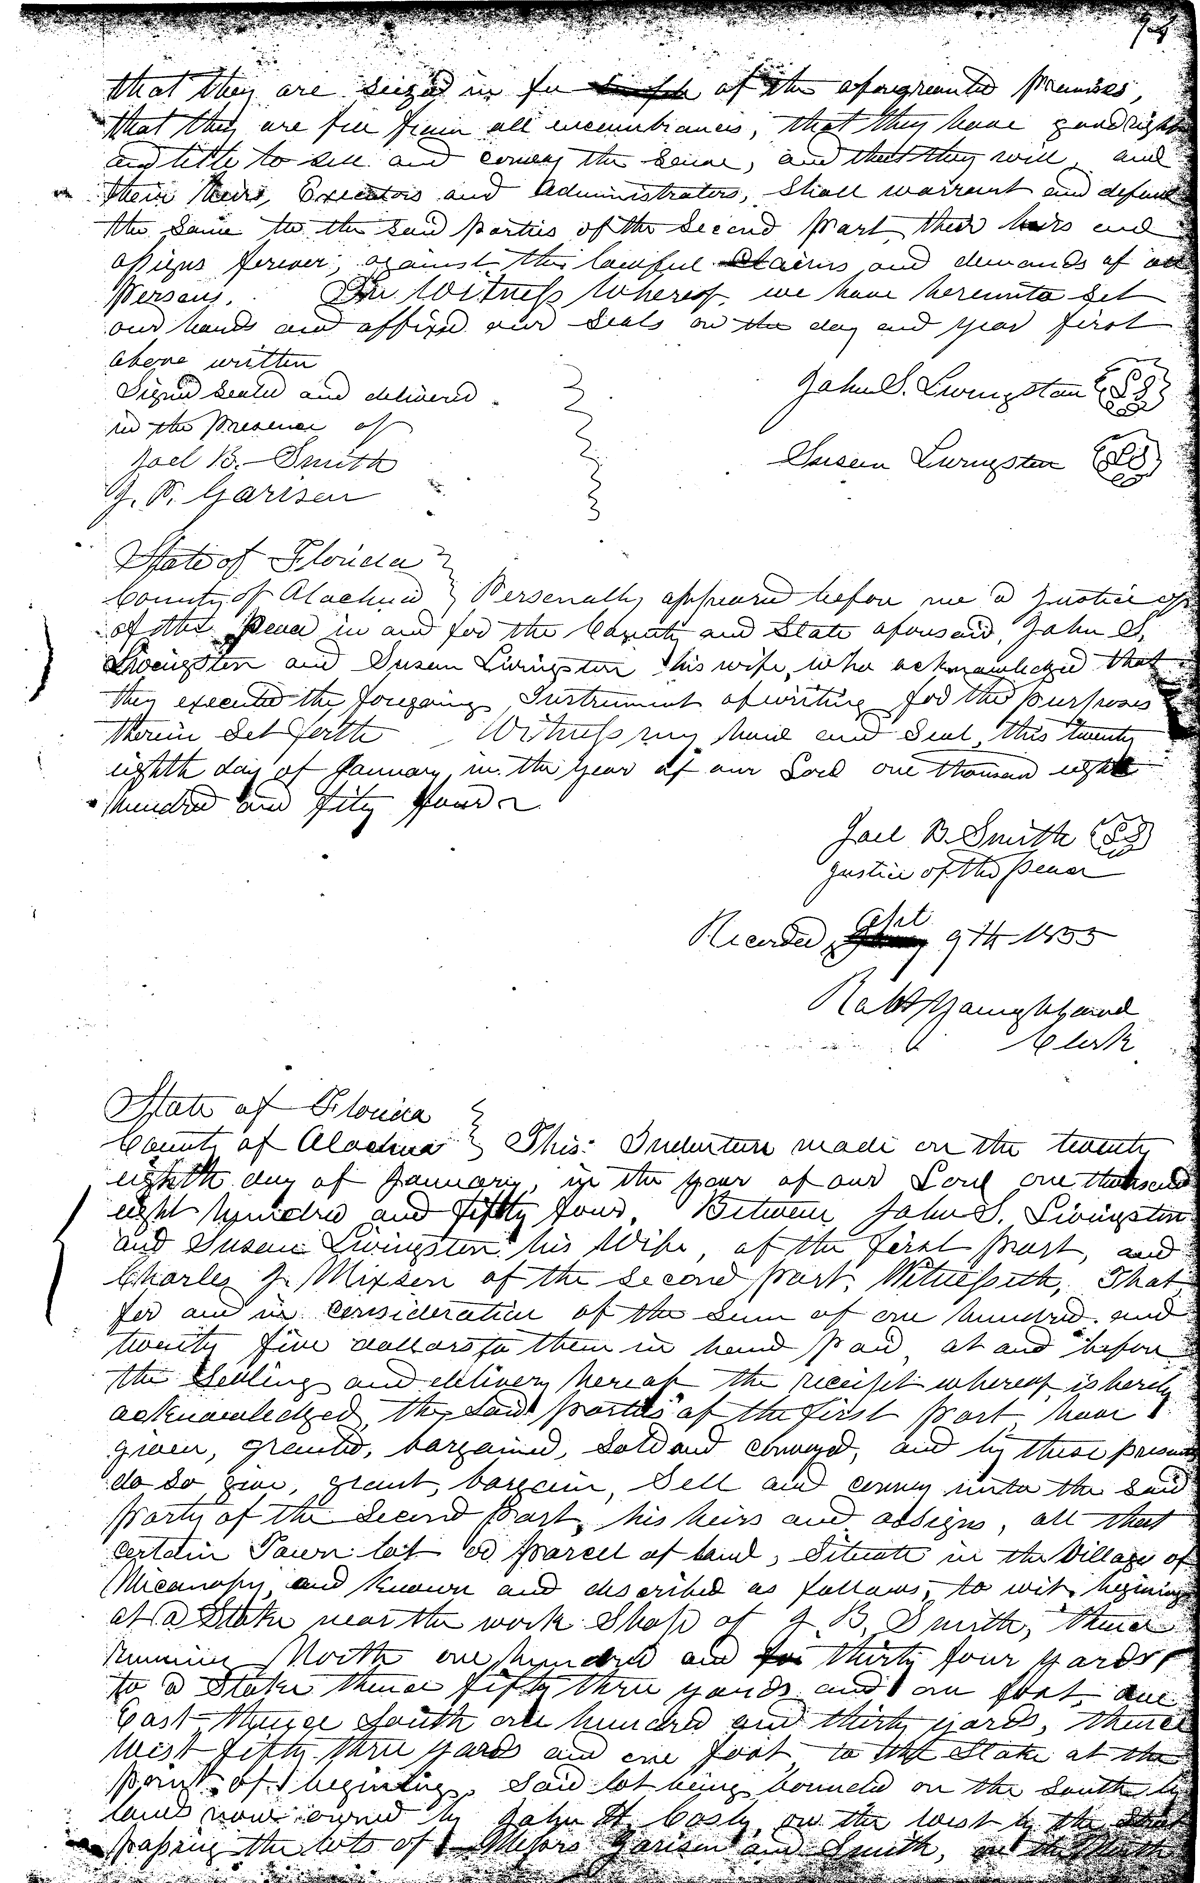 that they are seized in fee simple of the aforegranted premises,
that they are free from all encumbrances, that they have good right
and title to sell and convey the same, and that they will, and
their heirs, Executors and Administrators, shall warrant and defend
the same to the said parties of the second part, their heirs and
assigns forever, against the lawful claims and demands of all
persons. In Witness Whereof, we have hereunto set
our hands and affixed our seals on the day and year first
above written
Signed sealed and delivered
in the presence of
Joel B. Smith
J. P. Garison
John S. Livingston LS
Susan Livingston LS
State of Florida
County of Alachua } Personally appeared before me a Justice
of the peace in and for the County and State aforesaid, John S.
Livingston and Susan Livingston his wife, who acknowledged that
they executed the foregoing Instrument of writing for the purposes
therein set forth Witness my hand and seal, this twenty
eighth day of January in the year of our Lord one thousand eight
hundred and fifty four
Joel B. Smith LS
Justice of the peace
Recorded Apl 9th 1855
Clerk
State of Florida
County of Alachua } This Indenture made on the twenty
eighth day of January, in the year of our Lord one thousand
eight hundred and fifty four, Between John S. Livingston
and Susan Livingston his Wife, of the first part, and
Charles J. Mixson of the second part, Witnesseth, That
for and in consideration of the sum of one hundred and
twenty five dollars to them in hand paid, at and before
the sealing and delivery hereof the receipt whereof is hereby
acknowledged, the said parties of the first part have
given, granted, bargained, sold and conveyed, and by these presents
do so give, grant, bargain, sell and convey unto the said
party of the second part, his heirs and assigns, all that
certain Town lot or parcel of land, situate in the Village of
Micanopy, and known and described as follows, to wit, begining
at a Stake near the work Shop of J. B. Smith, thence
running North one hundred and thirty four yards,
to a Stake thence fifty three yards and one foot, due
East, thence South one hundred and thirty yards, thence
West fifty three yards and one foot, to the Stake at the
point of begining, said lot being bounded on the South by
lands now owned by John H. Cosly, on the west by the Street
passing the lots of Messrs Garison and Smith, on the North